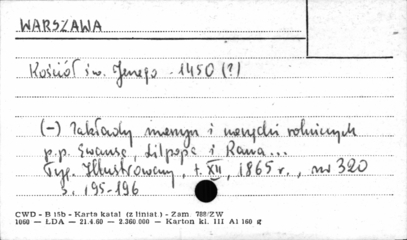 WARSZAWA
Kościół św. Jerzego - 1450 (?)
(-) Zakłady maszyn i narzędzi rolniczych
p.p. Ewansa, Lilpopa i Raua...
Tyg. Illustrowany, t. XII, 1865 r., nr 320
s. 195-196
CWD - B 15b - Karta katal (z liniat.) - Zam. 788/ZW
1060 — ŁDA — 21.4.60 — 2.360.000 — Karton kl. III A1 160 g